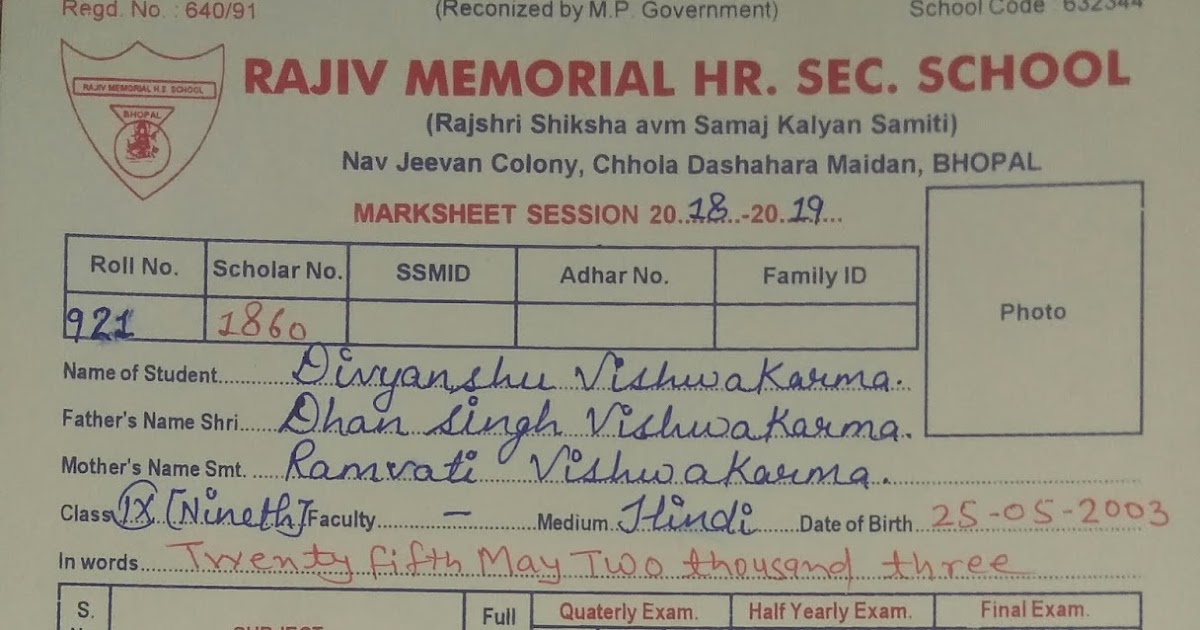 Regd. No. : 640/91 (Reconized by M.P. Government) School Code 632344
RAJIV MEMORIAL H.S. SCHOOL
BHOPAL
RAJIV MEMORIAL HR. SEC. SCHOOL
(Rajshri Shiksha avm Samaj Kalyan Samiti)
Nav Jeevan Colony, Chhola Dashahara Maidan, BHOPAL
MARKSHEET SESSION 20..18..-20..19...
Roll No. Scholar No. SSMID Adhar No. Family ID
921 1860
Photo
Name of Student........Divyanshu Vishwakarma.
Father's Name Shri......Dhan singh Vishwakarma.
Mother's Name Smt. .....Ramvati Vishwakarma.
Class IX [Nineth] Faculty.........—.........Medium Hindi.....Date of Birth 25-05-2003
In words.....Twenty fifth May Two thousand three
S. Full Quaterly Exam. Half Yearly Exam. Final Exam.